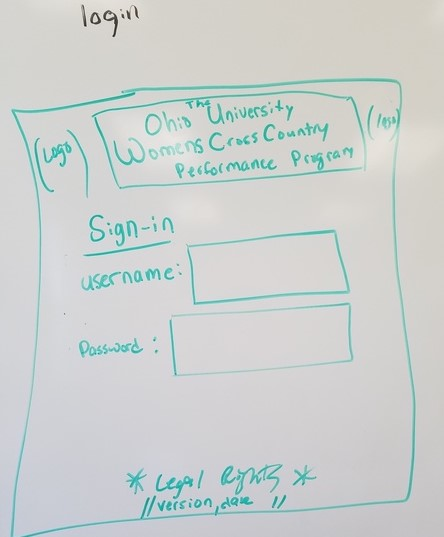 login
(Logo)
The
Ohio University
Womens Cross Country
Performance Program
(logo)
Sign-in
username:
Password:
* Legal Rights *
//version, date //